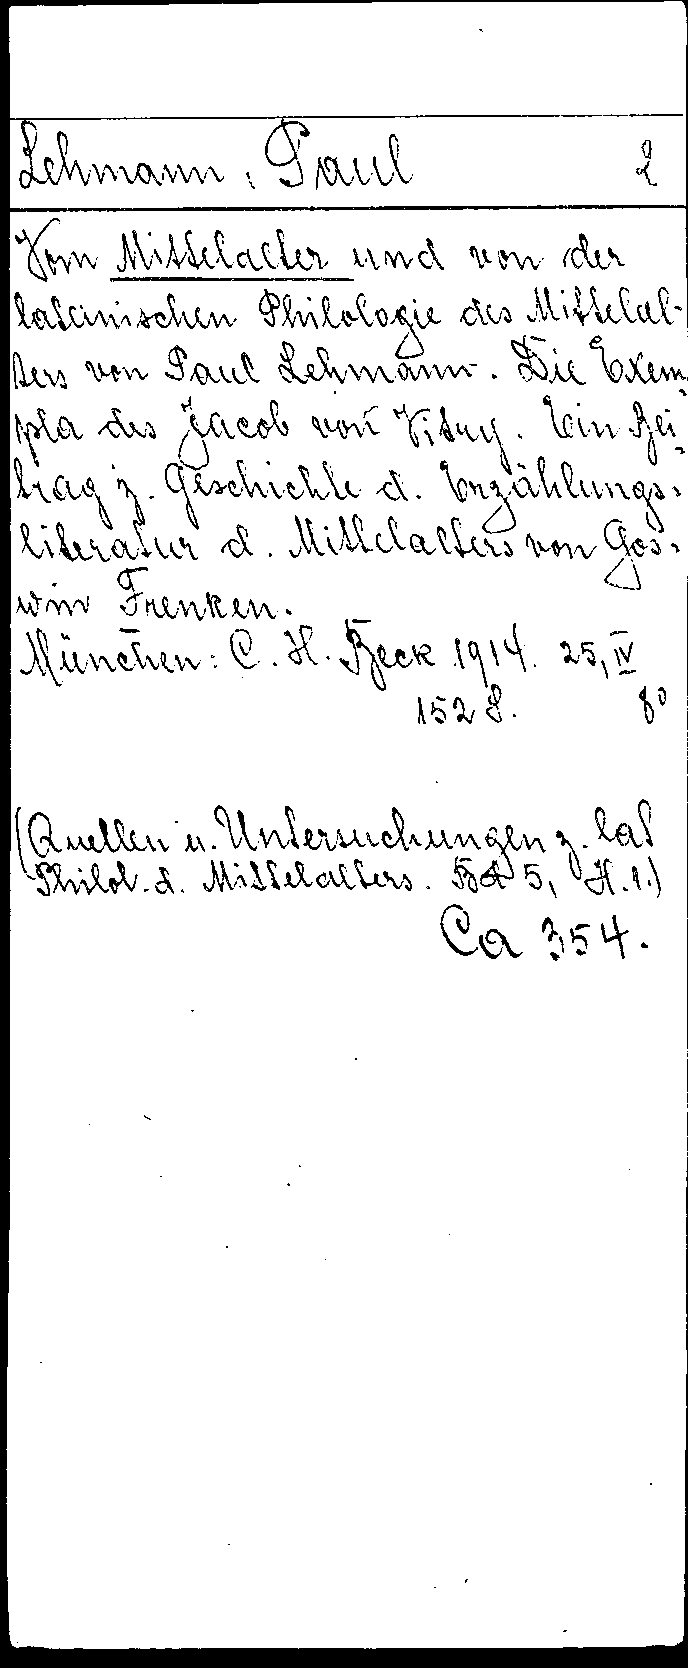 Lehmann, Paul 2
Vom Mittelalter und von der
lateinischen Philologie des Mittelal-
ters von Paul Lehmann. Die Exem-
pla des Jacob von Vitry. Ein Bei-
trag z. Geschichte d. Erzählungs-
literatur d. Mittelalters von Gos-
win Frenken.
München: C. H. Beck 1914. 25, IV
152 S. 8°
(Quellen u. Untersuchungen z. lat
Philol. d. Mittelalters. Bd 5, H. 1.)
Ca 354.